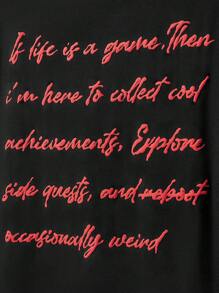 If life is a game, Then
i'm here to collect cool
achievements, Explore
side quests, and reboot
occasionally weird